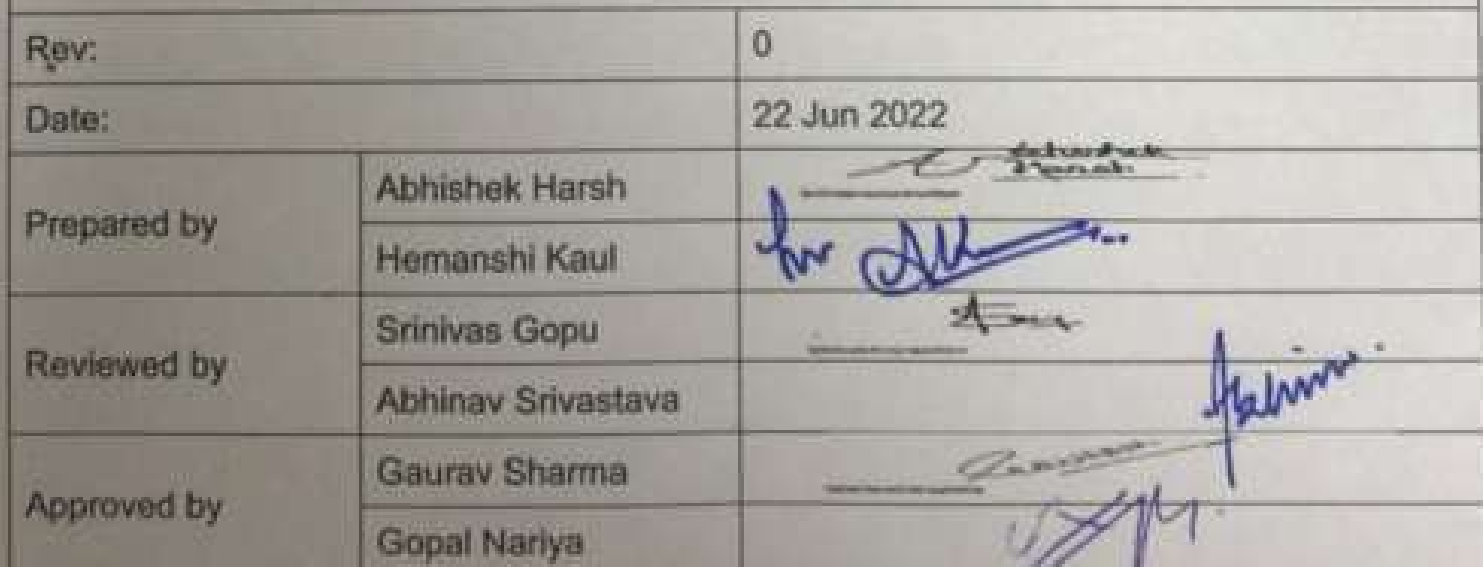 Rev: 0
Date: 22 Jun 2022
Prepared by
Abhishek Harsh
Hemanshi Kaul
for
Reviewed by
Srinivas Gopu
Abhinav Srivastava
Approved by
Gaurav Sharma
Gopal Nariya